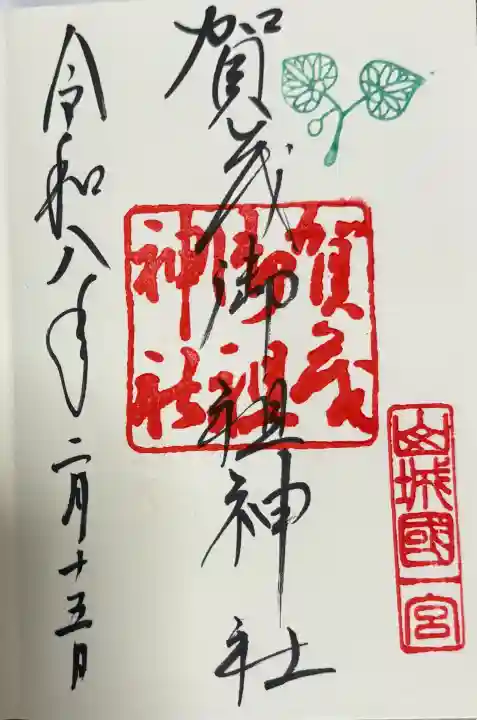 山城國一宮
賀茂御祖神社
賀茂御祖神社
令和八年二月十五日